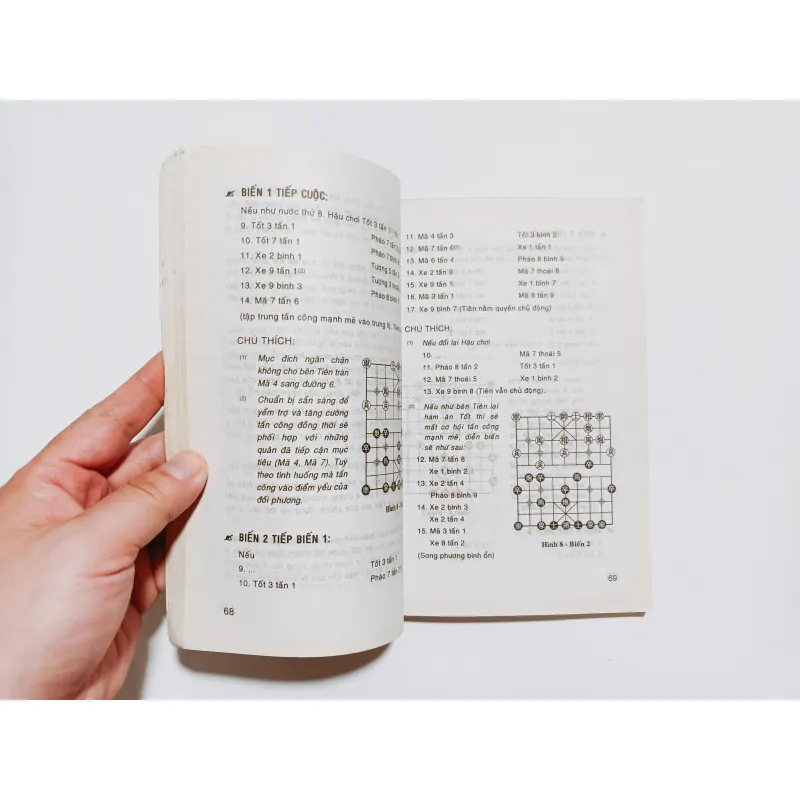 BIẾN 1 TIẾP CUỘC:
Nếu như nước thứ 8. Hậu chơi Tốt 3 tấn 1
9. Tốt 3 tấn 1 Pháo 7 tấn
10. Tốt 7 tấn 1 Pháo 7 bình
11. Xe 2 bình 1 Tượng 5 tấn
12. Xe 9 tấn 1(2) Tượng 3 thoái
13. Xe 9 bình 3 Pháo 8 bình
14. Mã 7 tấn 6
(tập trung tấn công mạnh mẽ vào trung lộ, Tiên
CHÚ THÍCH:
(1) Mục đích ngăn chặn
không cho bên Tiên tràn
Mã 4 sang đường 6.
(2) Chuẩn bị sẵn sàng để
yểm trợ và tăng cường
tấn công đồng thời sẽ
phối hợp với những
quân đã tiếp cận mục
tiêu (Mã 4, Mã 7). Tuỳ
theo tình huống mà tấn
công vào điểm yếu của
đối phương.
Hình 8
BIẾN 2 TIẾP BIẾN 1:
Nếu
9. ... Tốt 3 tấn 1
10. Tốt 3 tấn 1 Pháo 7 tấn
68
11. Mã 4 tấn 3 Tốt 3 bình 2
12. Mã 7 tấn 6(2) Xe 1 tấn 1
13. Mã 6 tấn 4 Pháo 8 bình 9
14. Xe 2 tấn 9 Mã 7 thoái 8
15. Xe 9 tấn 5 Xe 1 bình 7
16. Mã 3 tấn 1 Mã 8 tấn 9
17. Xe 9 bình 7 (Tiên nắm quyền chủ động)
CHÚ THÍCH:
(1) Nếu đổi lại Hậu chơi
10. ... Mã 7 thoái 5
11. Pháo 8 tấn 2 Tốt 3 tấn 1
12. Mã 7 thoái 5 Xe 1 bình 2
13. Xe 9 bình 8 (Tiên vẫn chủ động).
(2) Nếu như bên Tiên lại
ham ăn Tốt thì sẽ
mất cơ hội tấn công
mạnh mẽ, diễn biến
sẽ như sau:
12. Mã 7 tấn 8
Xe 1 bình 2
13. Xe 2 tấn 4
Pháo 8 bình 9
14. Xe 2 bình 3
Xe 2 tấn 4
15. Mã 3 tấn 1
Xe 8 tấn 2
(Song phương bình ổn)
Hình 8 - Biến 2
69